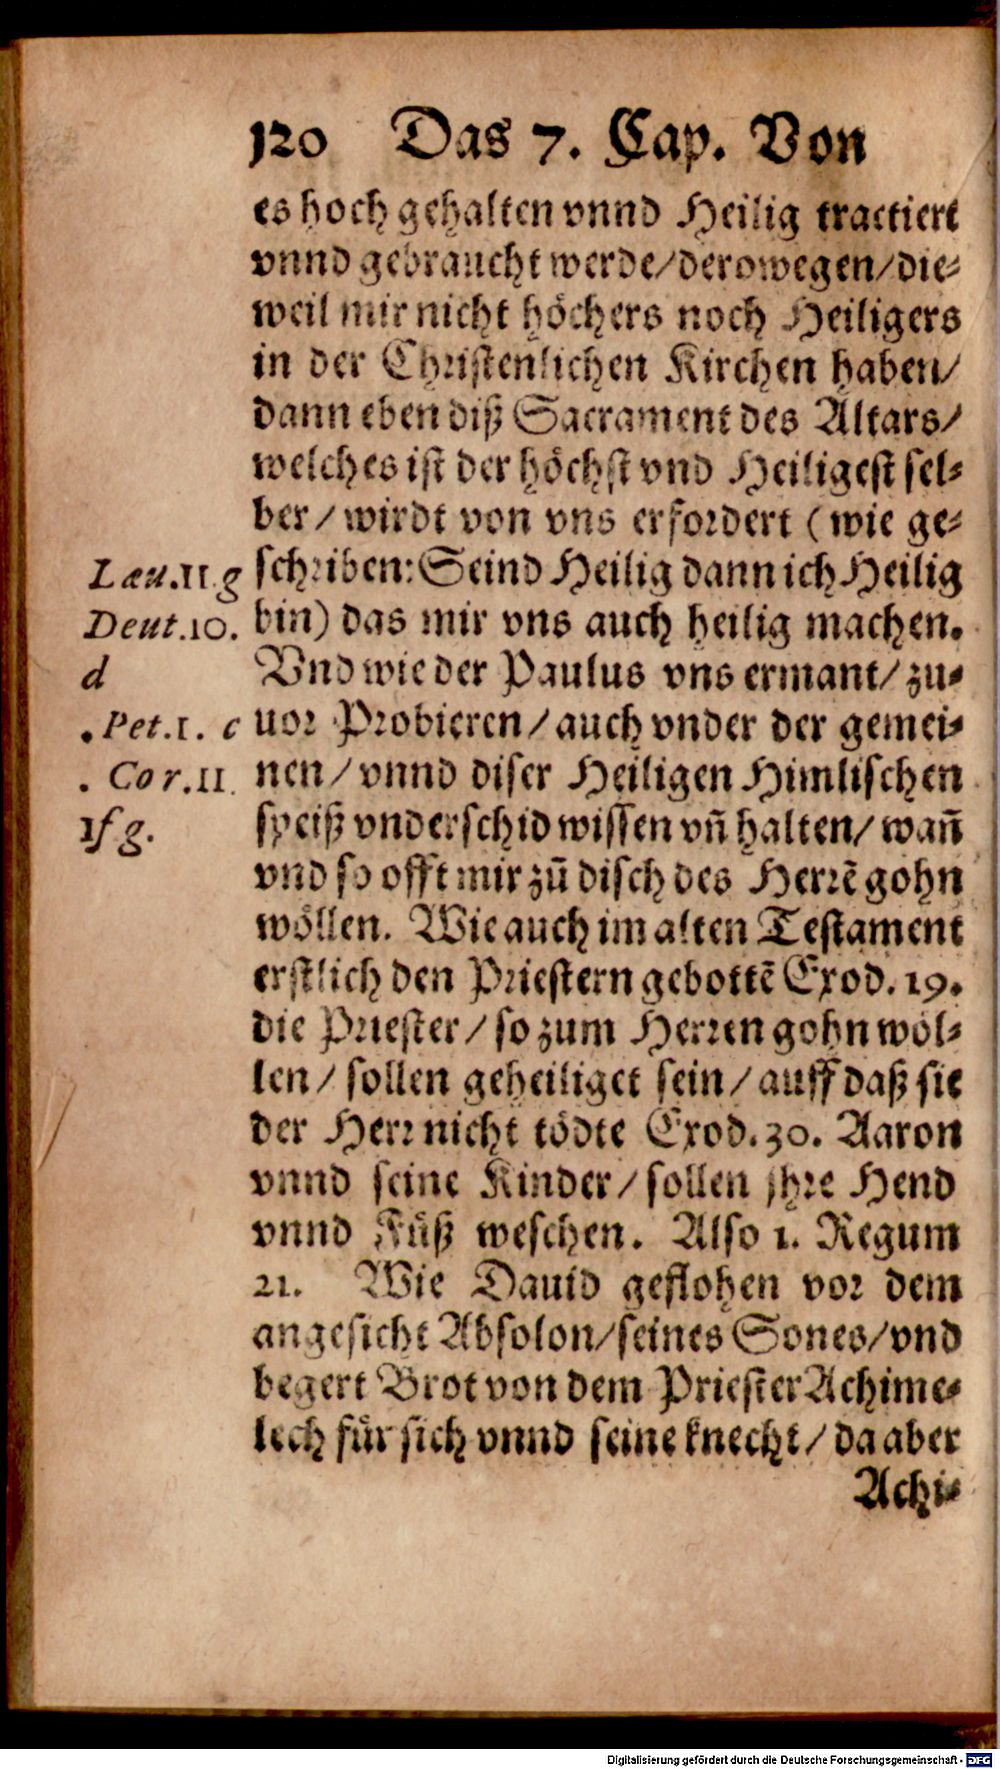 120 Das 7. Cap. Von
es hoch gehalten vnnd Heilig tractiert
vnnd gebraucht werde/derowegen/die-
weil mir nicht höchers noch Heiligers
in der Christenlichen Kirchen haben/
dann eben diß Sacrament des Altars/
welches ist der höchst vnd Heiligest sel-
ber/wirdt von vns erfordert (wie ge-
schriben: Seind Heilig dann ich Heilig
bin) das mir vns auch heilig machen.
Vnd wie der Paulus vns ermant/zu-
uor Probieren/auch vnder der gemei-
nen/vnnd diser Heiligen Himlischen
speiß vnderschid wissen vñ halten/wañ
vnd so offt mir zũ disch des Herrẽ gohn
wöllen. Wie auch im alten Testament
erstlich den Priestern gebottẽ Exod. 19.
die Priester/so zum Herren gohn wöl-
len/sollen geheiliget sein/auff daß sie
der Herr nicht tödte Exod. 30. Aaron
vnnd seine Kinder/sollen jhre Hend
vnnd Füß weschen. Also 1. Regum
21. Wie Dauid geflohen vor dem
angesicht Absolon/seines Sones/vnd
begert Brot von dem Priester Achime-
lech für sich vnnd seine knecht/da aber
Achi-
Læu.11.g
Deut.10.
d
. Pet.1. c
. Cor.11.
1ſ g.
Digitalisierung gefördert durch die Deutsche Forschungsgemeinschaft - DFG